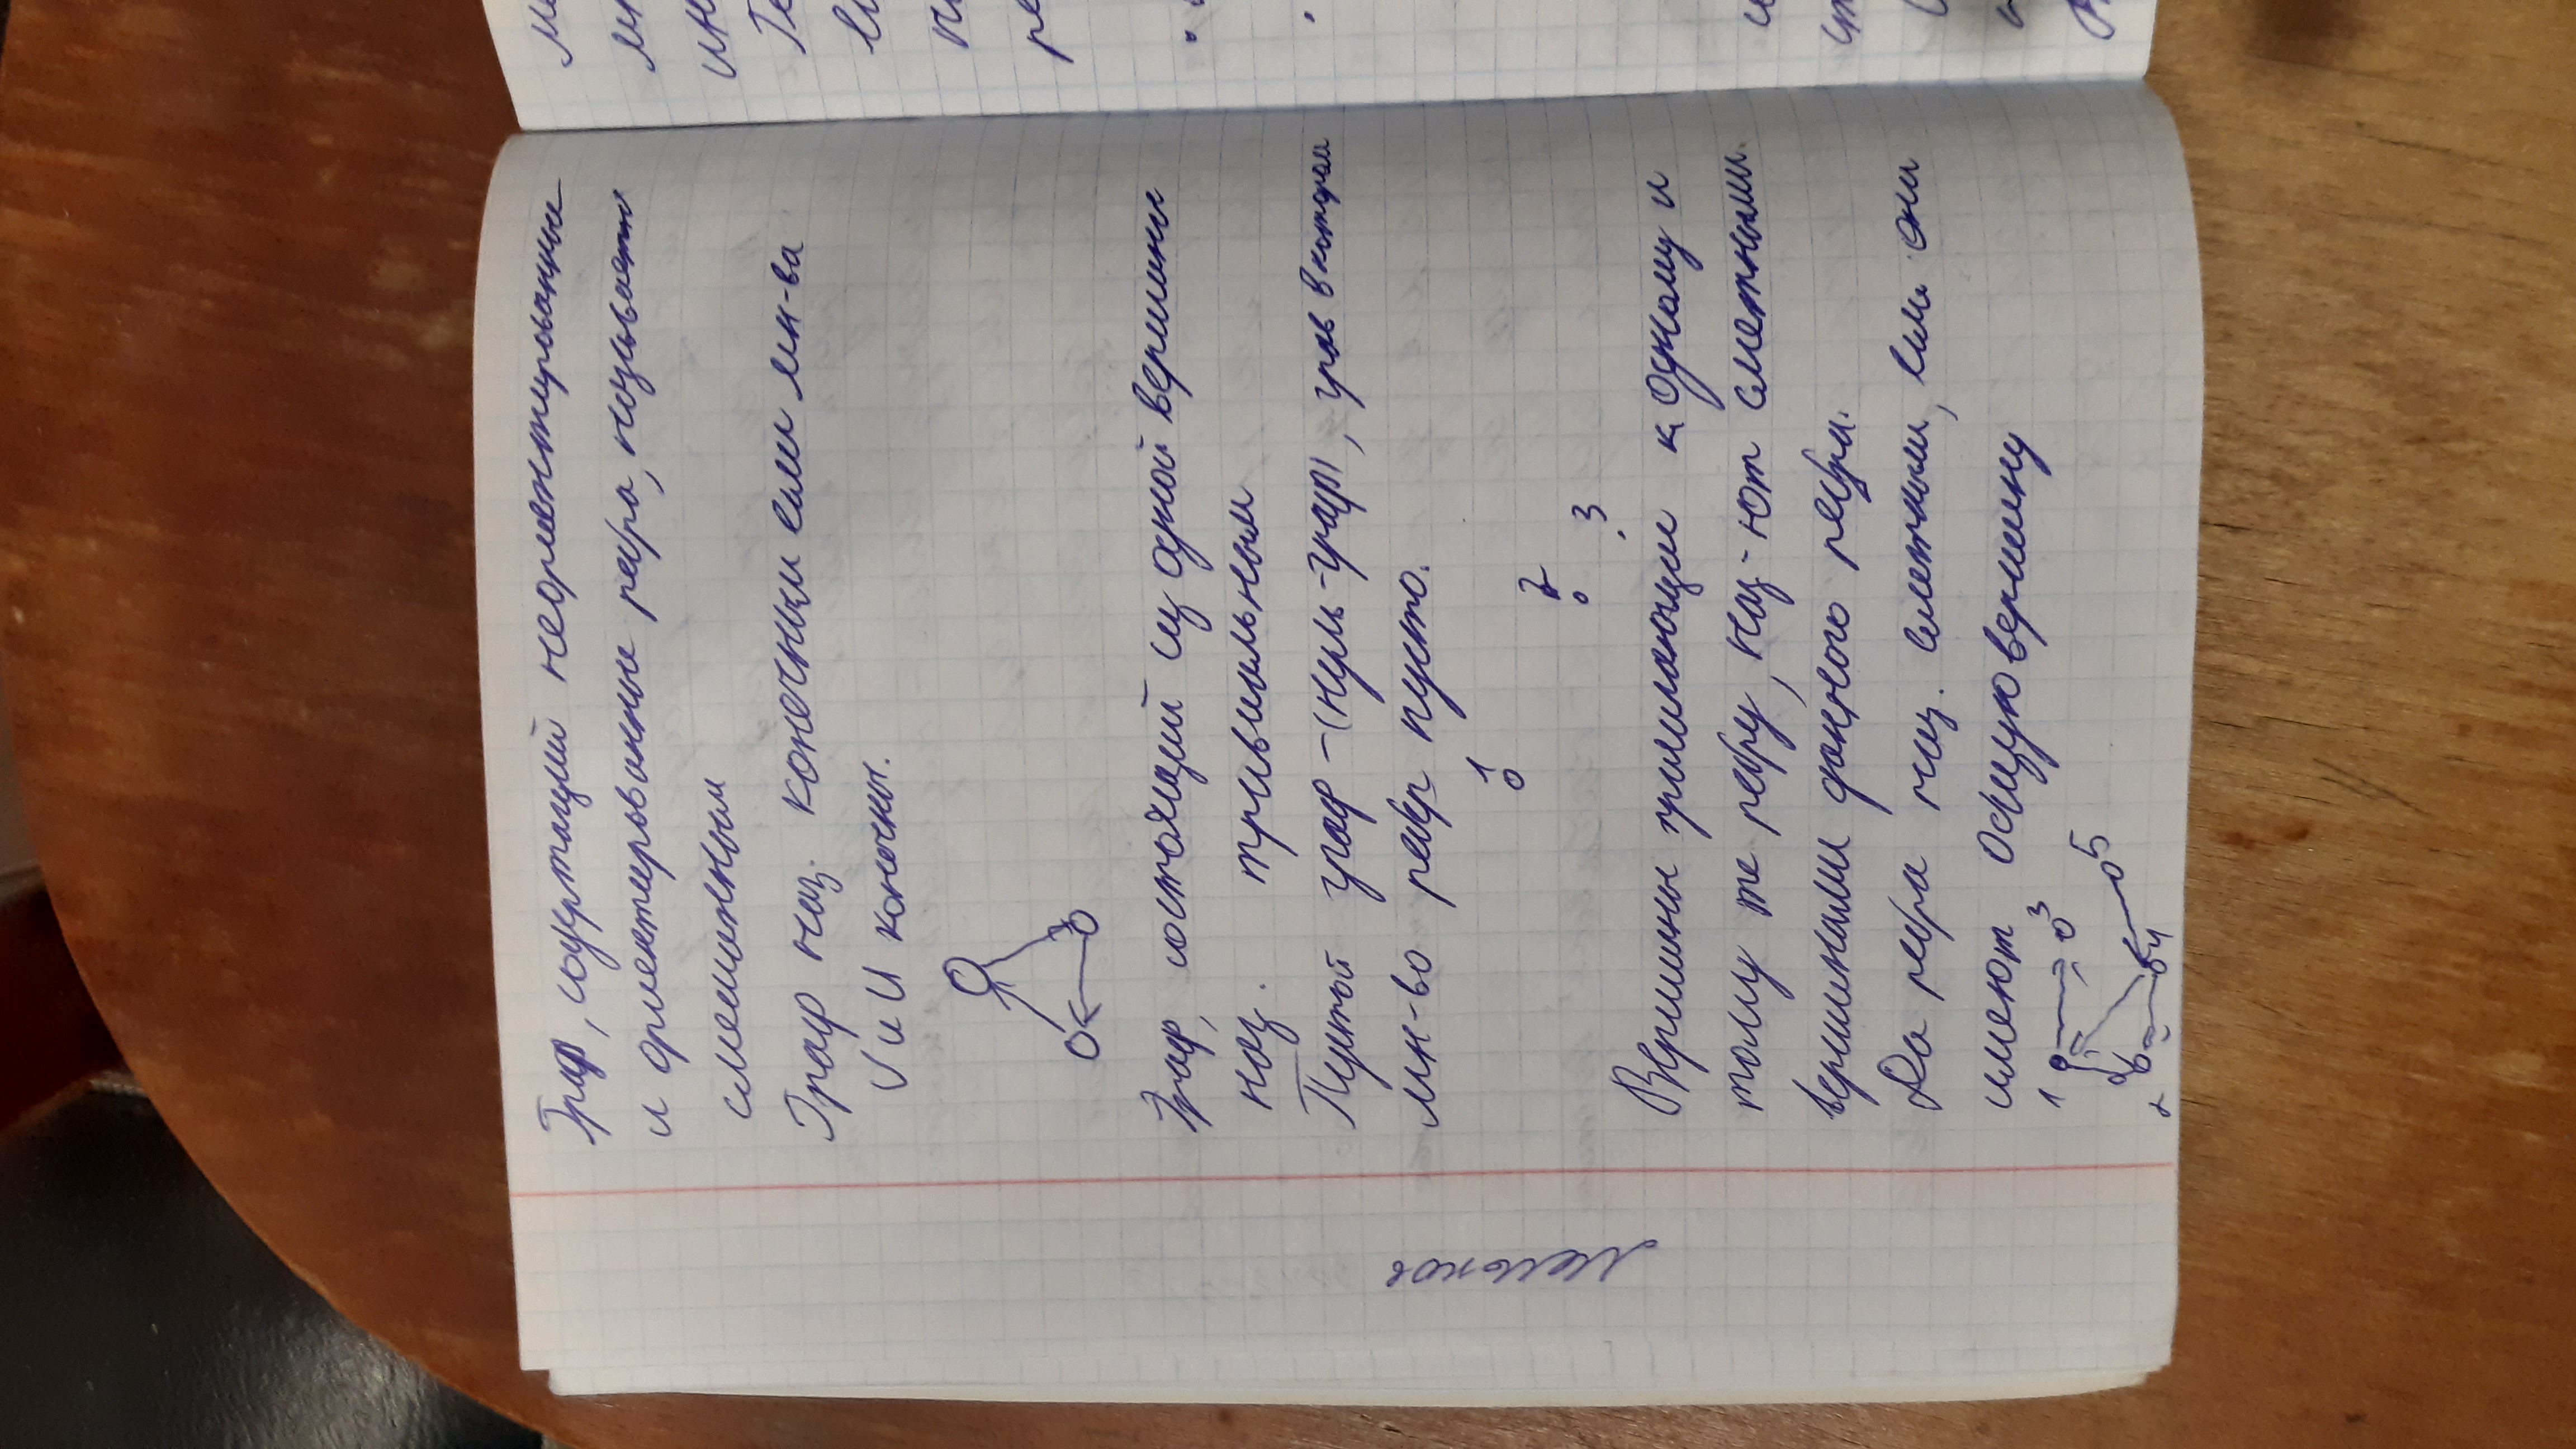 Граф, содержащий неориентированные
и ориентированные ребра, называется
смешанным
Граф наз. конечным если мн-ва
V и U конечны.
Граф, состоящий из одной вершины
наз. тривиальным
Пустой граф -(нуль-граф), грав в котором
мн-во ребер пусто.
1
2
3
Вершины прилигающие к одному и
тому же ребру, наз-ют смежными
вершинами данного ребра.
Два ребра наз. смежными, если они
имеют общую вершину
1 3
5
2 4
Мельков